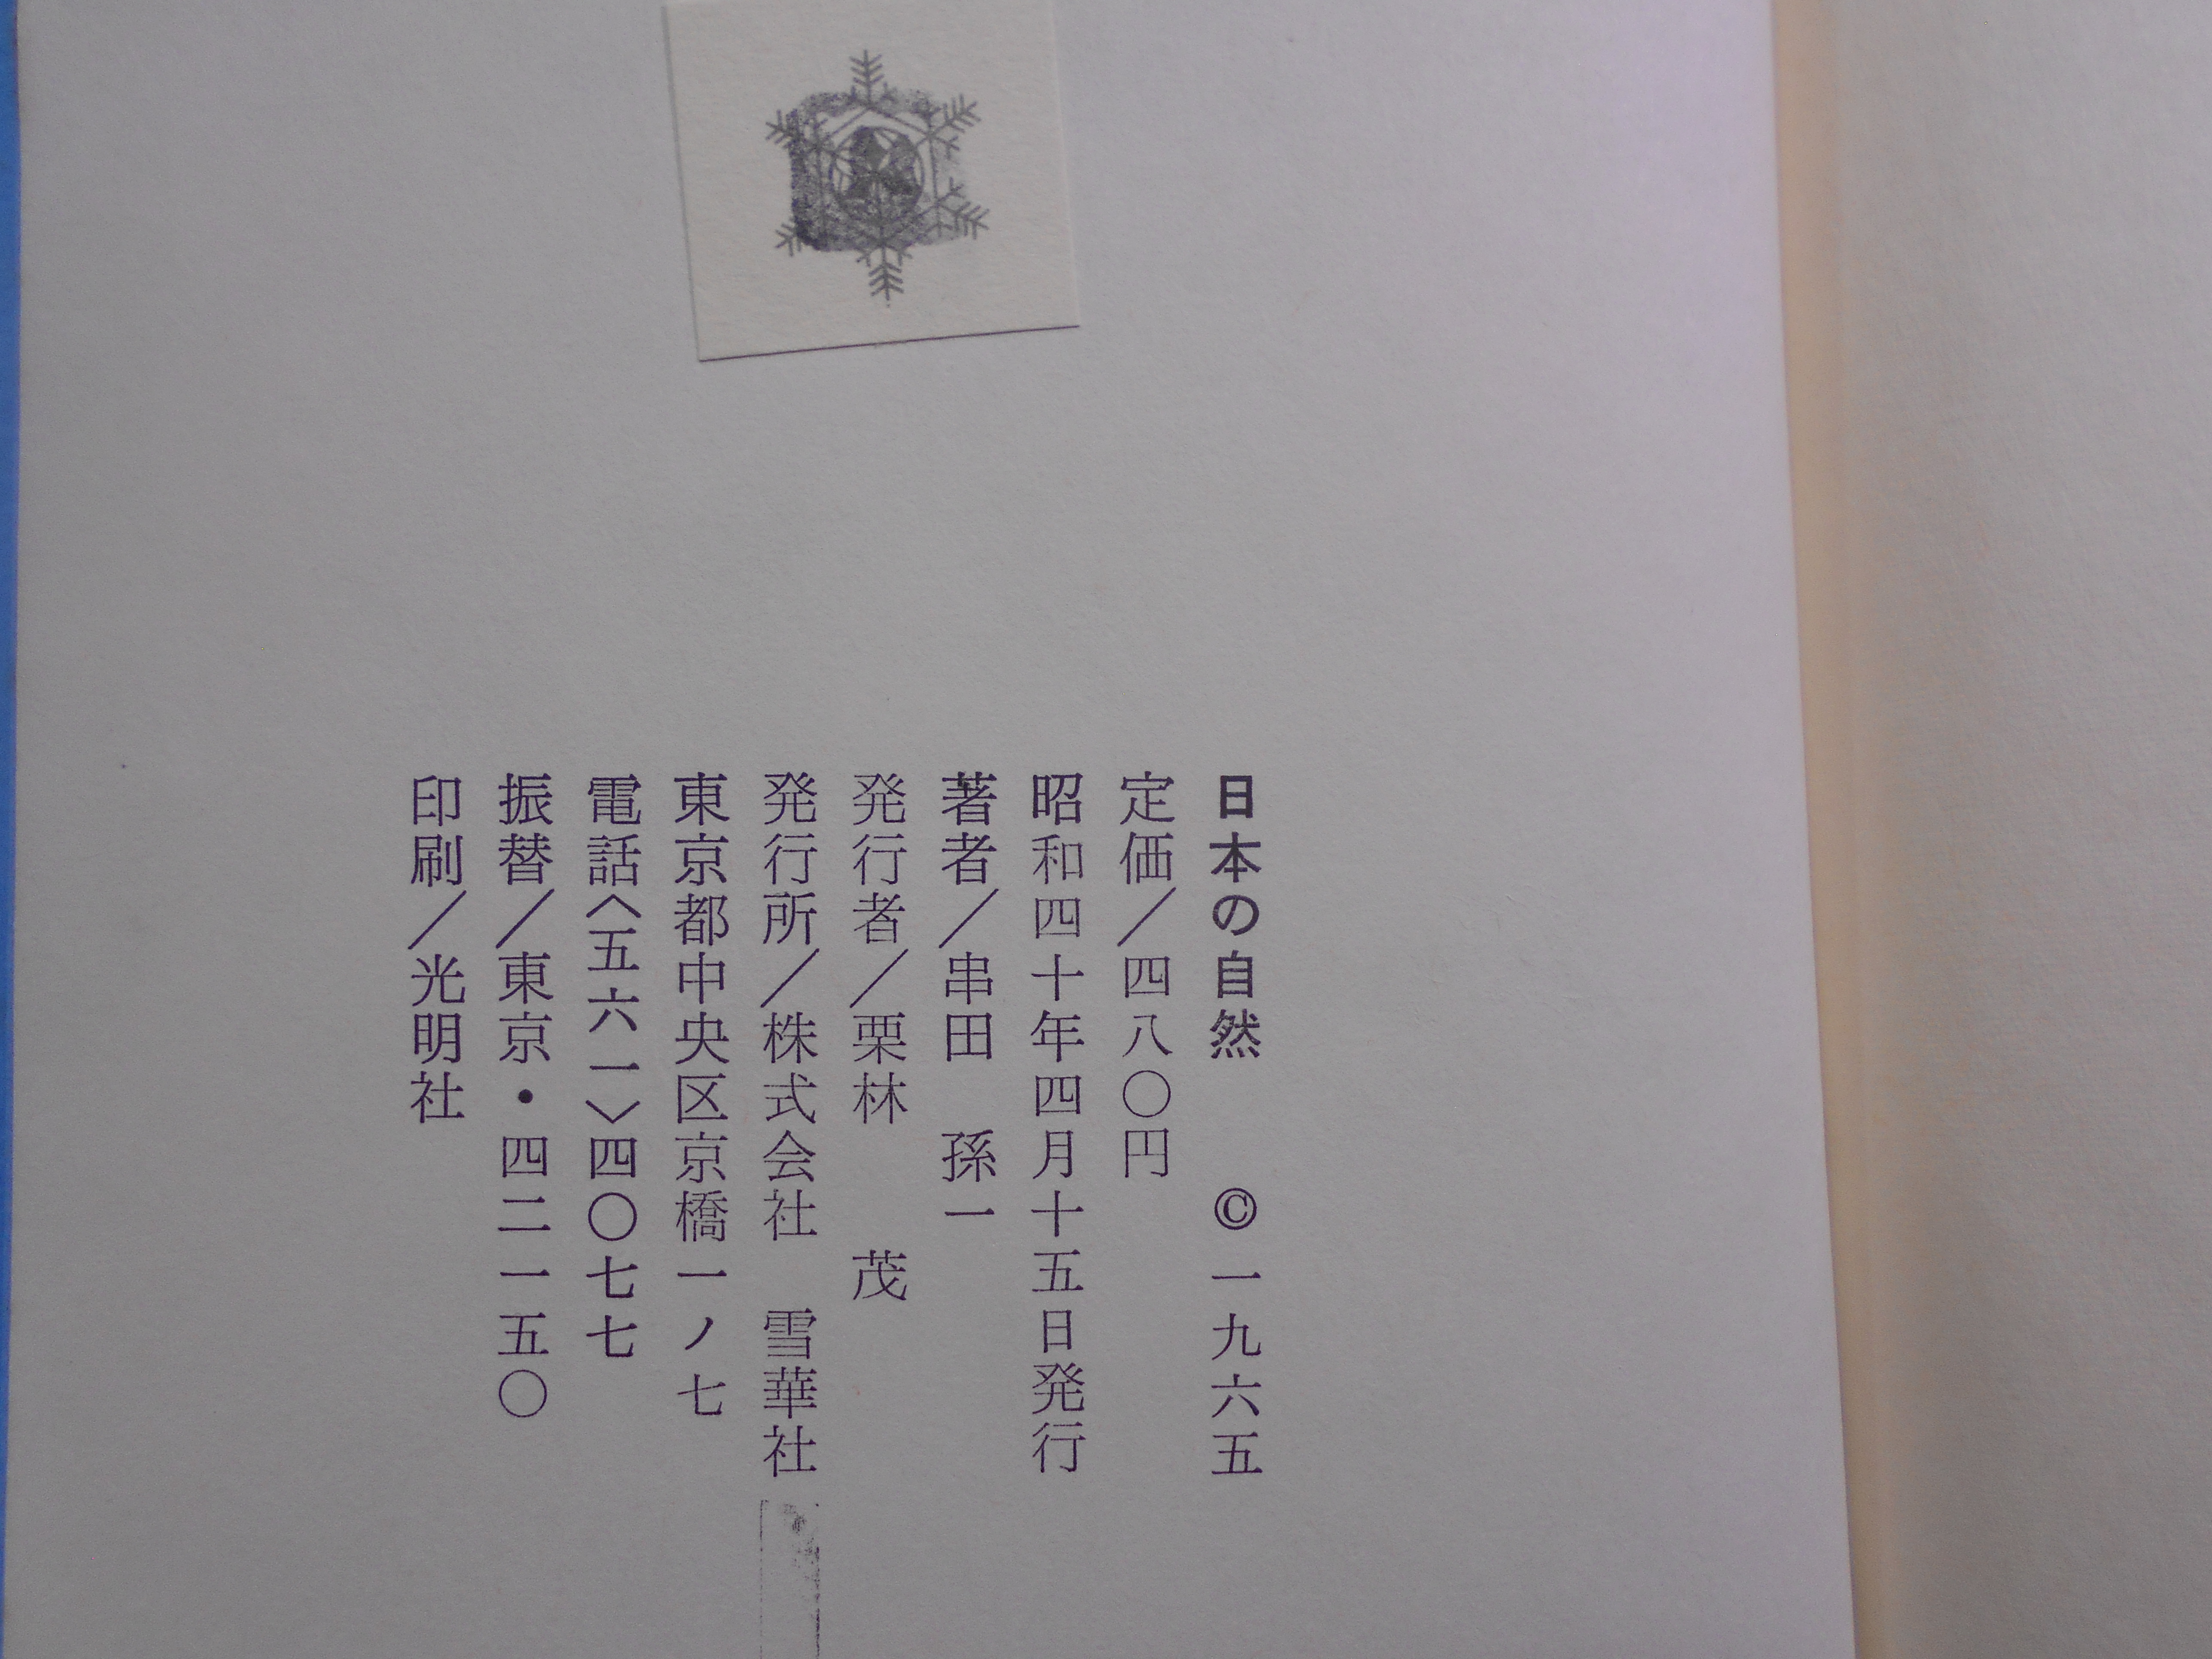 日本の自然　©一九六五
定価／四八〇円
昭和四十年四月十五日発行
著者／串田　孫一
発行者／栗林　　茂
発行所／株式会社　雪華社
東京都中央区京橋一ノ七
電話〈五六一〉四〇七七
振替／東京・四二一五〇
印刷／光明社